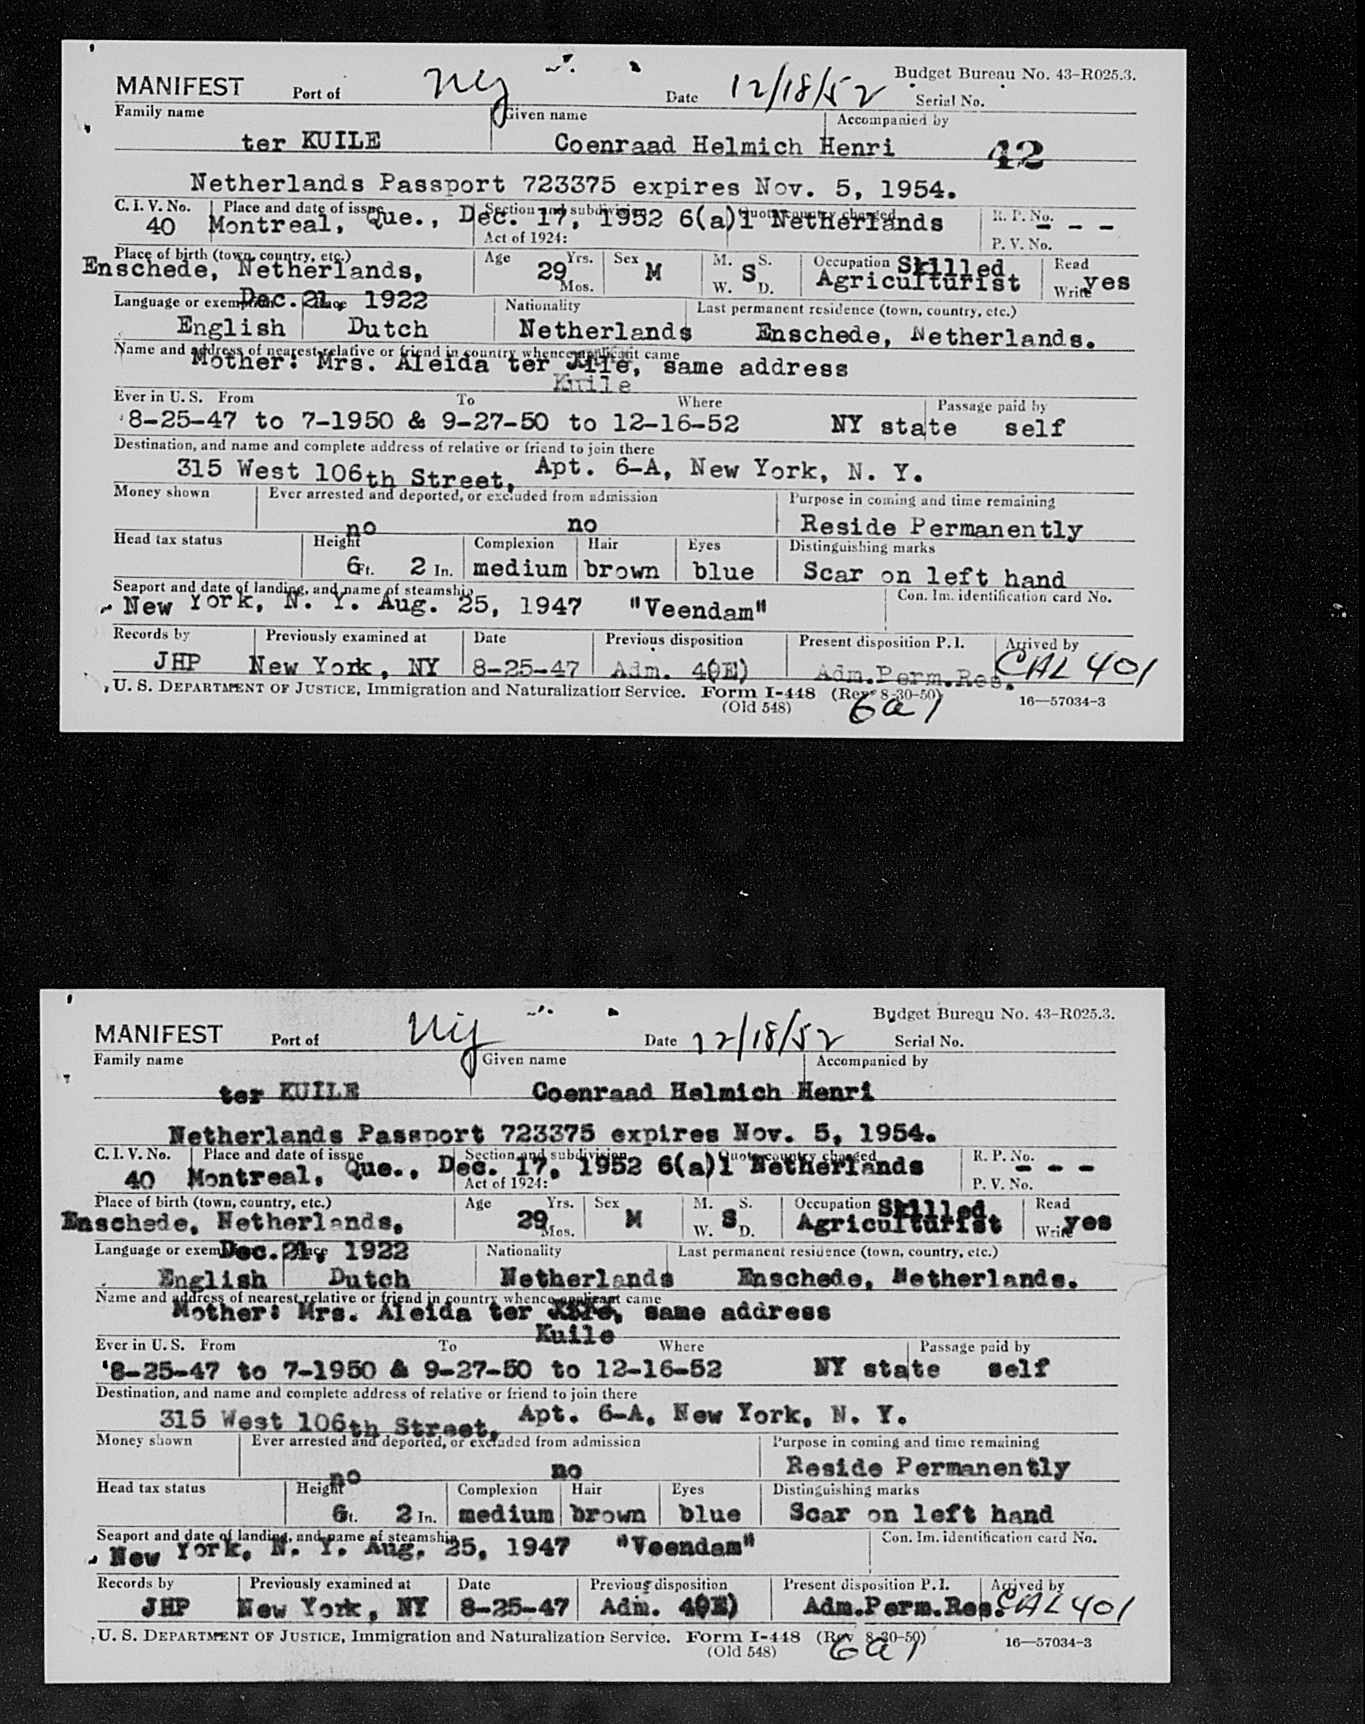 Budget Bureau No. 43-R025.3.
MANIFEST Port of NY Date 12/18/52 Serial No.
Family name Given name Accompanied by
ter KUILE Coenraad Helmich Henri 42
Netherlands Passport 723375 expires Nov. 5, 1954.
C. I. V. No. Place and date of issue Section and subdivision Quota country charged R. P. No.
40 Montreal, Que., Dec. 17, 1952 6(a)1 Netherlands - - -
Act of 1924: P. V. No.
Place of birth (town, country, etc.) Age Yrs. Sex M. S. Occupation Skilled Read
Enschede, Netherlands, 29 Mos. M S W. D. Agriculturist Write yes
Language or exemption Dec. 21, Race 1922 Nationality Last permanent residence (town, country, etc.)
English Dutch Netherlands Enschede, Netherlands.
Name and address of nearest relative or friend in country whence applicant came
Mother: Mrs. Aleida ter same address
Kuile
Ever in U. S. From To Where Passage paid by
8-25-47 to 7-1950 & 9-27-50 to 12-16-52 NY state self
Destination, and name and complete address of relative or friend to join there
315 West 106th Street, Apt. 6-A, New York, N. Y.
Money shown Ever arrested and deported, or excluded from admission Purpose in coming and time remaining
no no Reside Permanently
Head tax status Height Complexion Hair Eyes Distinguishing marks
6 Ft. 2 In. medium brown blue Scar on left hand
Seaport and date of landing, and name of steamship Con. Im. identification card No.
New York, N. Y. Aug. 25, 1947 "Veendam"
Records by Previously examined at Date Previous disposition Present disposition P. I. Arrived by
JHP New York, NY 8-25-47 Adm. 4(E) Adm.Perm.Res. CAL 401
U. S. DEPARTMENT OF JUSTICE, Immigration and Naturalization Service. Form I-448 (Rev. 8-30-50) 16—57034-3
(Old 548) 6a1
Budget Bureau No. 43-R025.3.
MANIFEST Port of NY Date 12/18/52 Serial No.
Family name Given name Accompanied by
ter KUILE Coenraad Helmich Henri
Netherlands Passport 723375 expires Nov. 5, 1954.
C. I. V. No. Place and date of issue Section and subdivision Quota country charged R. P. No.
40 Montreal, Que., Dec. 17, 1952 6(a)1 Netherlands - - -
Act of 1924: P. V. No.
Place of birth (town, country, etc.) Age Yrs. Sex M. S. Occupation Skilled Read
Enschede, Netherlands, 29 Mos. M S W. D. Agriculturist Write yes
Language or exemption Dec. 21, Race 1922 Nationality Last permanent residence (town, country, etc.)
English Dutch Netherlands Enschede, Netherlands.
Name and address of nearest relative or friend in country whence applicant came
Mother: Mrs. Aleida ter same address
Kuile
Ever in U. S. From To Where Passage paid by
8-25-47 to 7-1950 & 9-27-50 to 12-16-52 NY state self
Destination, and name and complete address of relative or friend to join there
315 West 106th Street, Apt. 6-A, New York, N. Y.
Money shown Ever arrested and deported, or excluded from admission Purpose in coming and time remaining
no no Reside Permanently
Head tax status Height Complexion Hair Eyes Distinguishing marks
6 Ft. 2 In. medium brown blue Scar on left hand
Seaport and date of landing, and name of steamship Con. Im. identification card No.
New York, N. Y. Aug. 25, 1947 "Veendam"
Records by Previously examined at Date Previous disposition Present disposition P. I. Arrived by
JHP New York, NY 8-25-47 Adm. 4(E) Adm.Perm.Res. CAL 401
U. S. DEPARTMENT OF JUSTICE, Immigration and Naturalization Service. Form I-448 (Rev. 8-30-50) 16—57034-3
(Old 548) 6a1